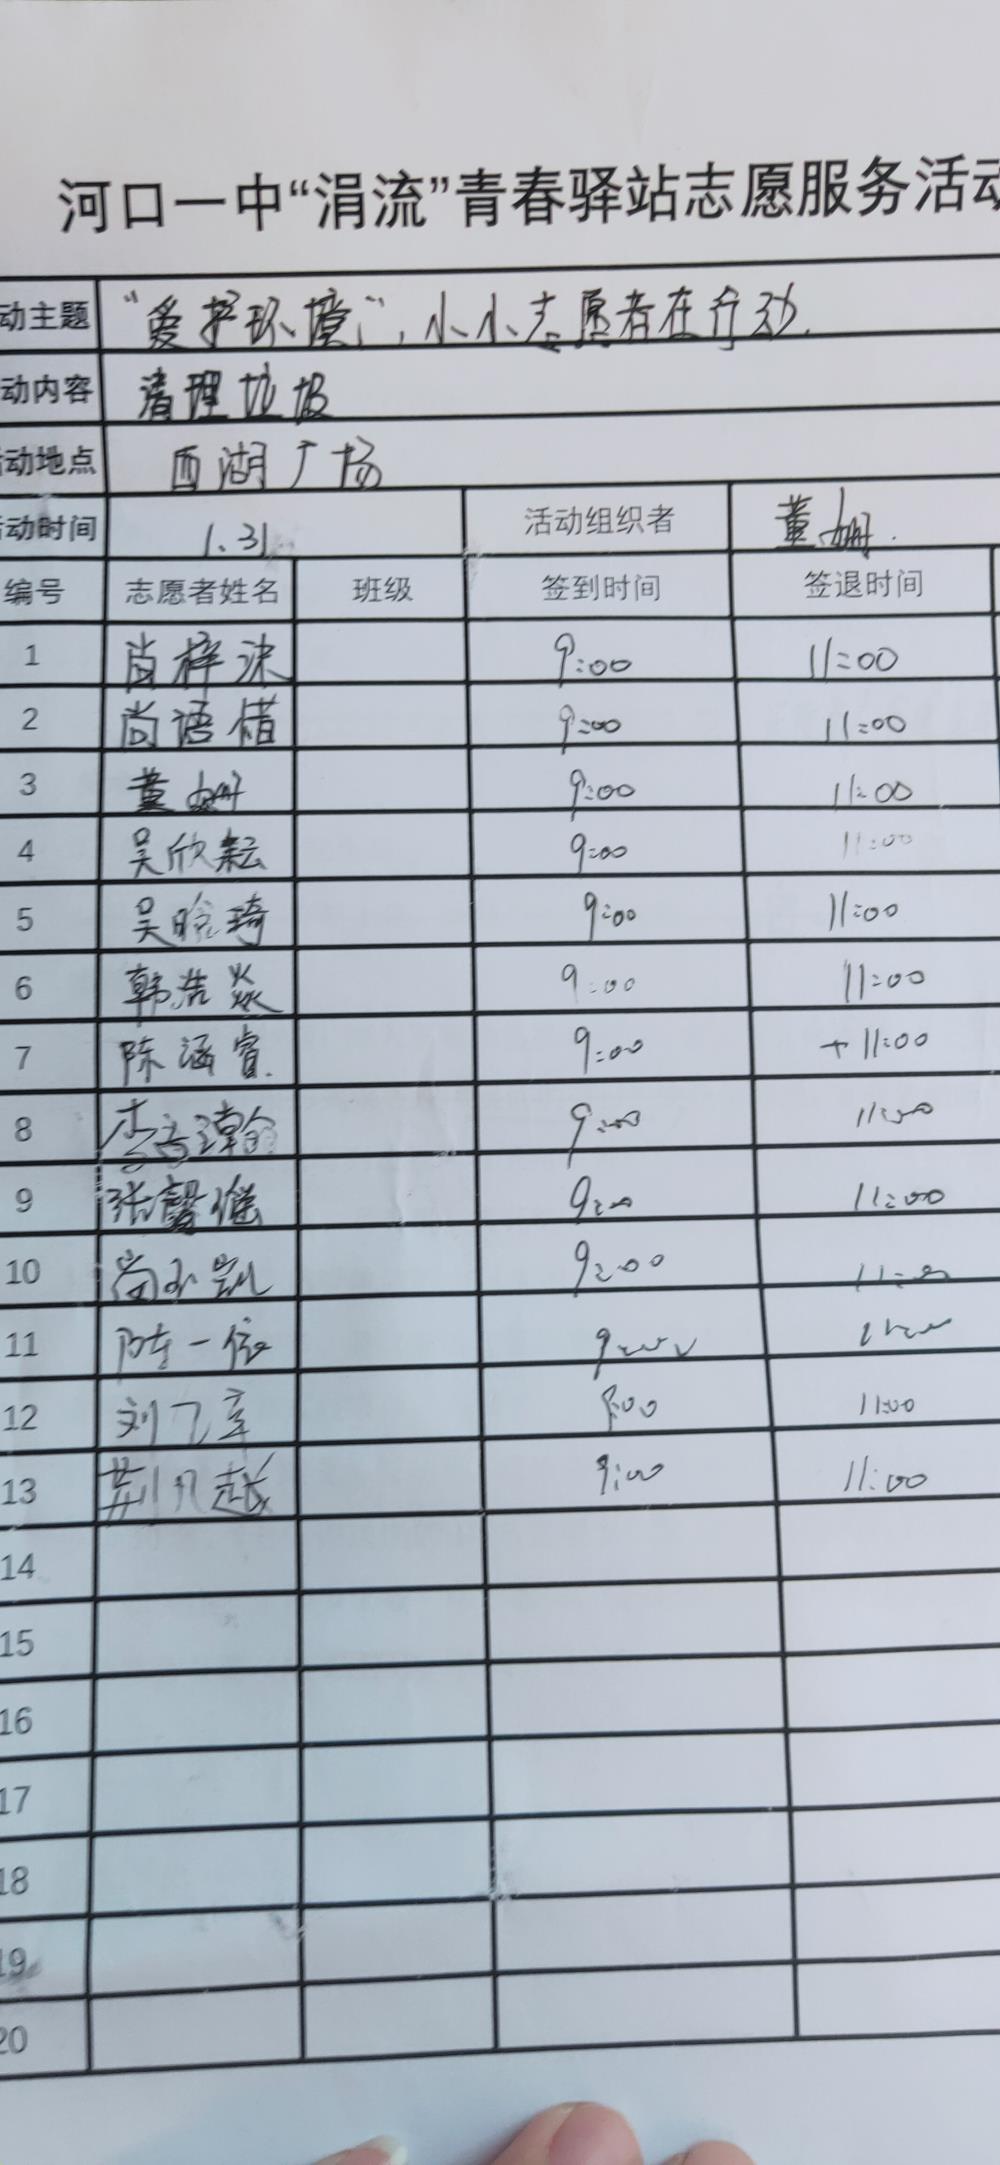 河口一中“涓流”青春驿站志愿服务活动
动主题 “爱护环境”，小小志愿者在行动.
动内容 清理垃圾
活动地点 西湖广场
活动时间 1.31 活动组织者 董姗.
编号 志愿者姓名 班级 签到时间 签退时间
1 尚梓沫 9:00 11:00
2 尚语惜 9:00 11:00
3 董姗 9:00 11:00
4 吴欣耘 9:00 11:00
5 吴晗琦 9:00 11:00
6 韩浩焱 9:00 11:00
7 陈涵睿. 9:00 11:00
8 9:00 11:00
9 张馨 9:00 11:00
10 尚 凯 9:00 11:00
11 陈一依 9:00 11:00
12 刘 9:00 11:00
13 荆凡越 9:00 11:00
14
15
16
17
18
19
20